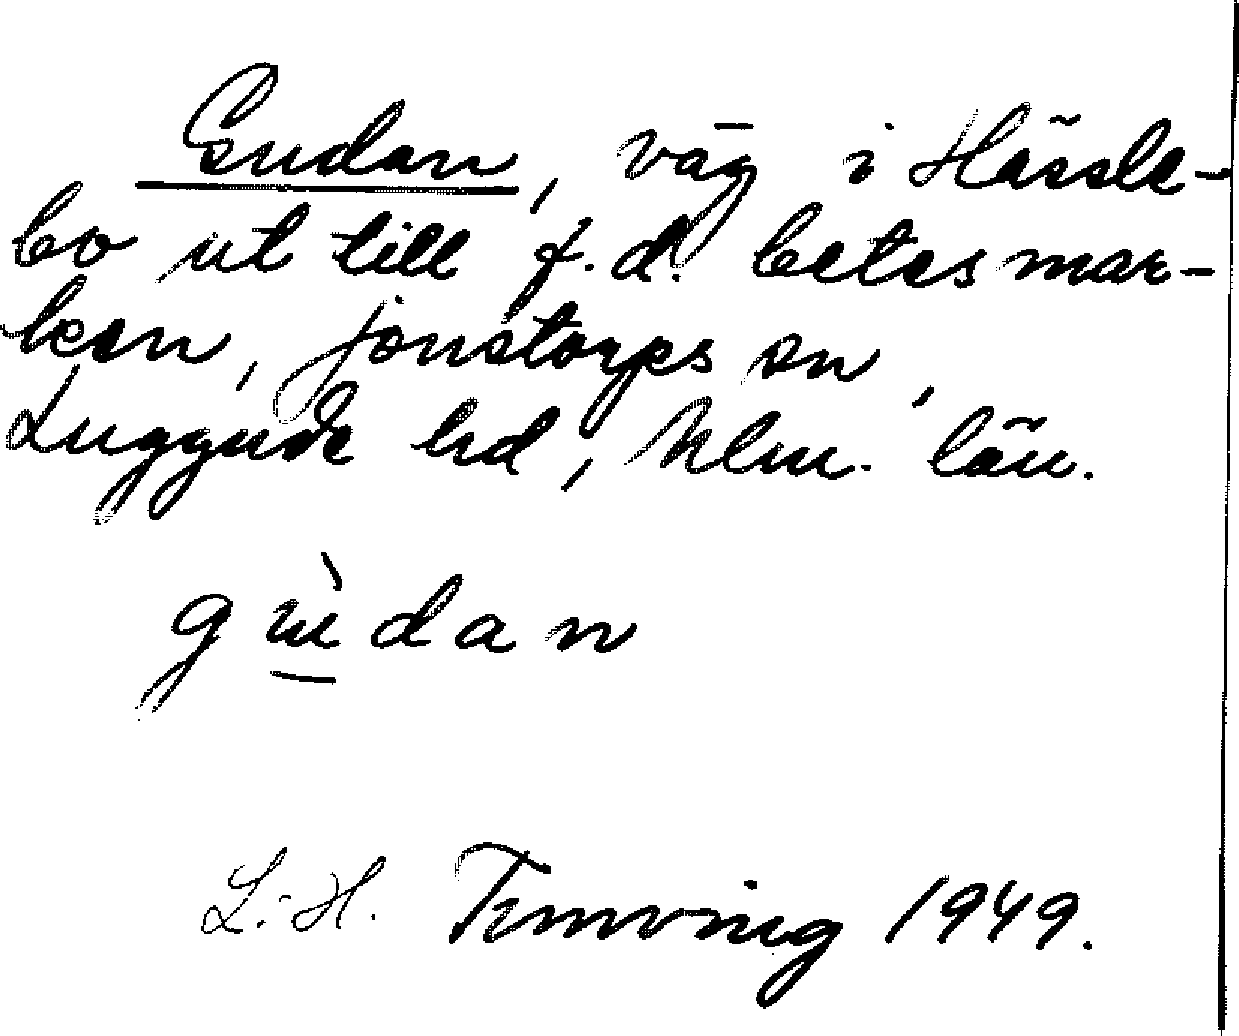 Gudan, väg i Hässle-
bo ut till f.d. betesmar-
ken, Jonstorps sn,
Luggude hd, Mlm. län.
gùdan
L.-H. 1949.